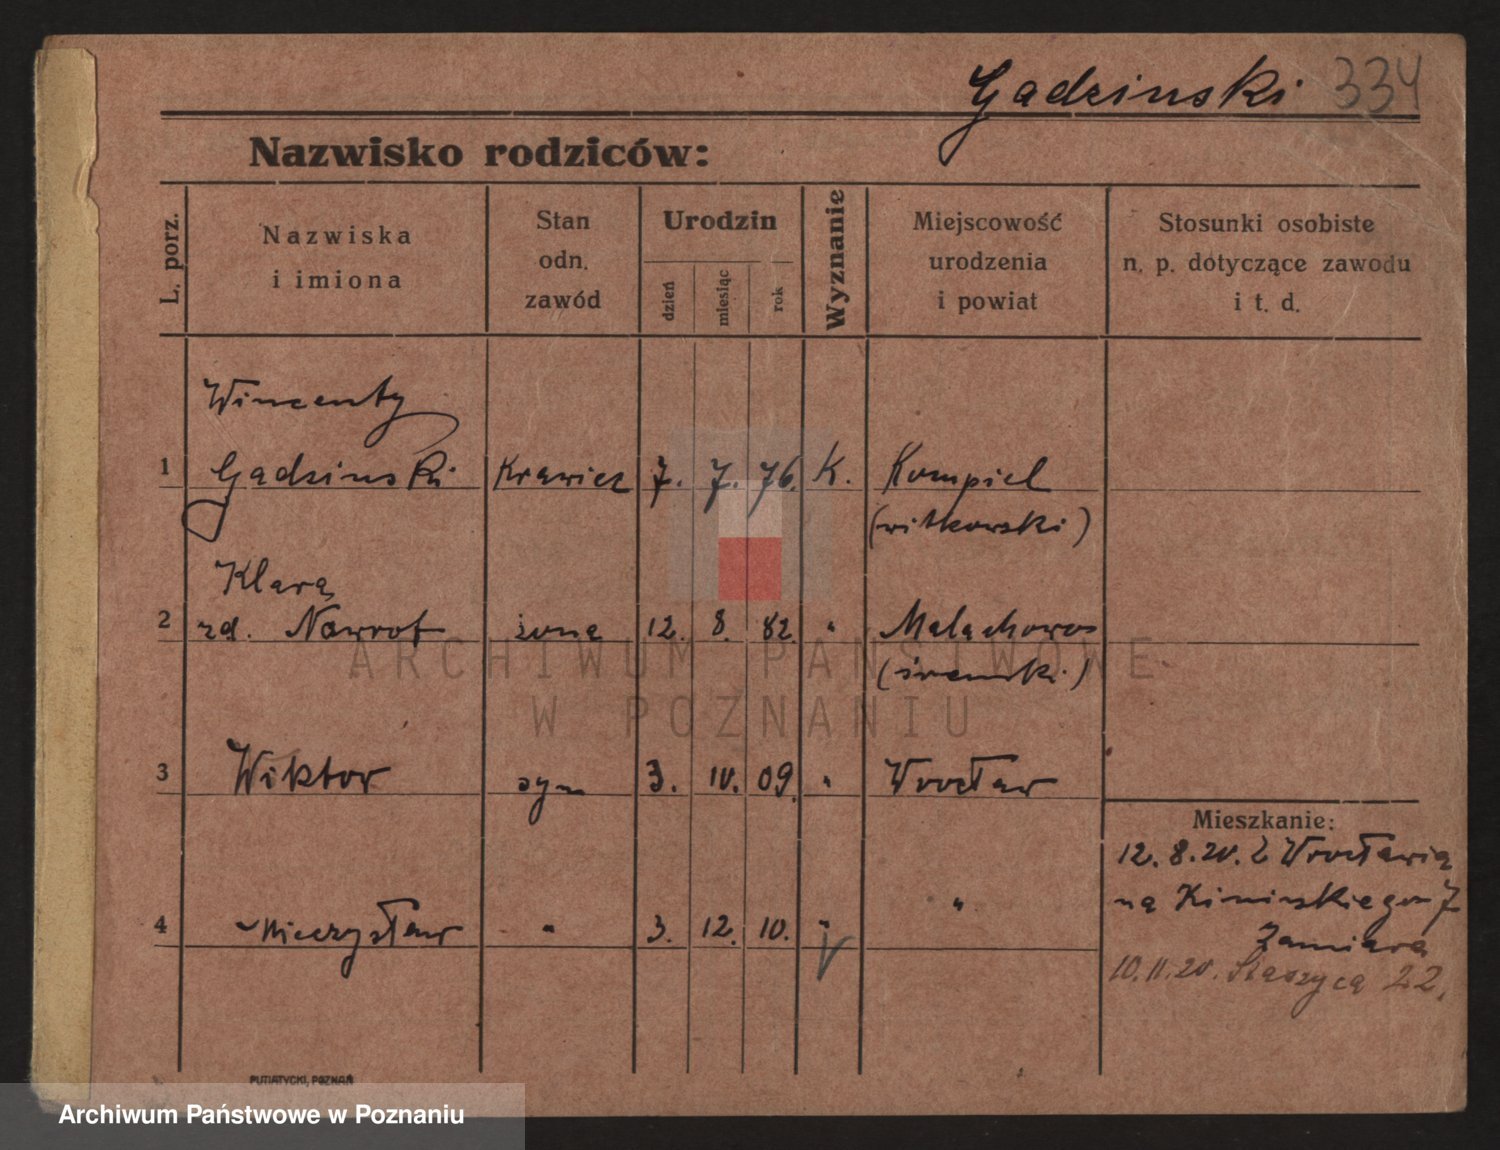 Gadzinski 334
Nazwisko rodziców:
L. porz.
Nazwiska
i imiona
Stan
odn.
zawód
Urodzin
dzień
miesiąc
rok
Wyznanie
Miejscowość
urodzenia
i powiat
Stosunki osobiste
n. p. dotyczące zawodu
i t. d.
Wincenty
1 Gadzinski Krawiec 7. 7. 76. K. Kompiel
(witkowski)
Klara
2 zd. Nawrot żona 12. 8. 82. " Malachowo
(śremski)
3 Wiktor syn 3. 10. 09. " Wrocław
Mieszkanie:
12. 8. 20. z Wrocławia
na Kinińskiego 7
4 Mieczysław " 3. 12. 10. " "
Zamiara
10. 11. 20. Staszyca 22.
PUTIATYCKI, POZNAŃ
ARCHIWUM PAŃSTWOWE
W POZNANIU
Archiwum Państwowe w Poznaniu